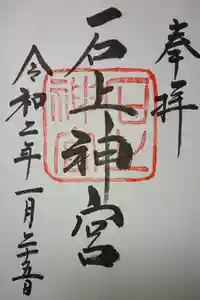 奉拝
石上神宮
令和二年一月二十五日